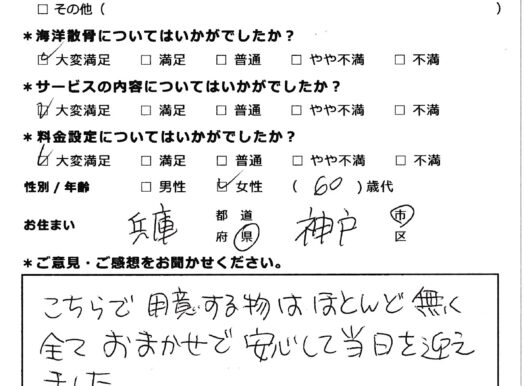 □ その他 ( )
*海洋散骨についてはいかがでしたか？
☑ 大変満足 □ 満足 □ 普通 □ やや不満 □ 不満
*サービスの内容についてはいかがでしたか？
☑ 大変満足 □ 満足 □ 普通 □ やや不満 □ 不満
*料金設定についてはいかがでしたか？
☑ 大変満足 □ 満足 □ 普通 □ やや不満 □ 不満
性別 / 年齢 □ 男性 ☑ 女性 ( 60 ) 歳代
お住まい 兵庫 都 道 府 県 神戸 市 区
*ご意見・ご感想をお聞かせください。
こちらで用意する物はほとんど無く
全ておまかせで安心して当日を迎え
ました